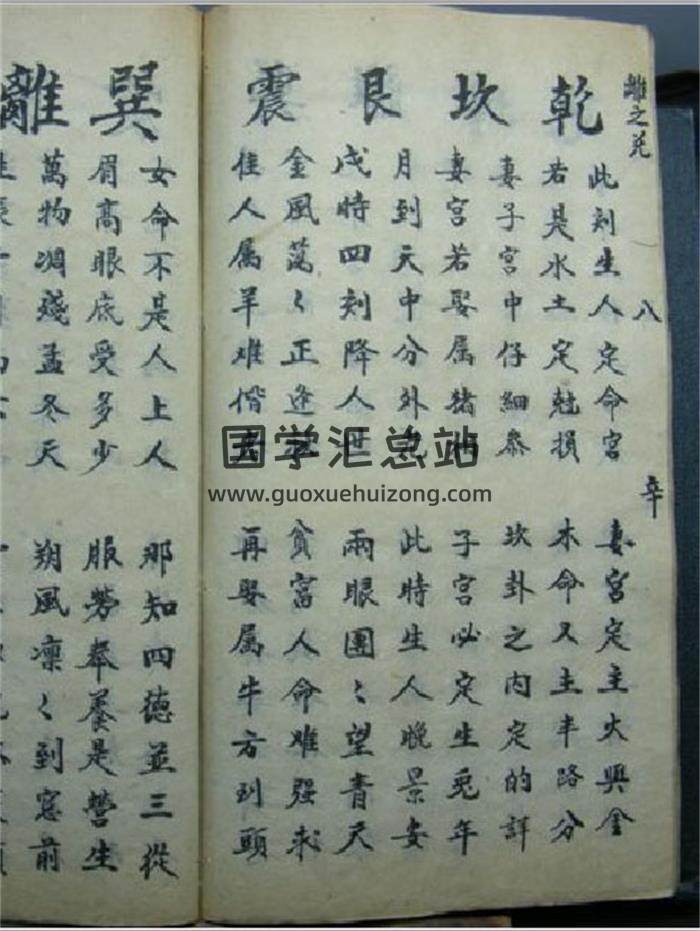 離之兑
八
辛
乾
此刻生人定命宫 妻宫定主火與金
若是水土定尅損 木命又主半路分
坎
妻子宫中仔細叅 坎卦之内定的詳
妻宫若娶属猪相 子宫必定生兎年
艮
月到天中分外 此時生人晚景安
戌時四刻降人世 兩眼團〻望青天
震
金風蕩〻正逢 貧富人命难强求
佳人属羊难偕 再娶属牛方到頭
巽
女命不是人上人 那知四德並三從
眉高眼底受多少 服劳奉养是营生
離
萬物凋殘孟冬天 朔風凛〻到窓前
国学汇总站
www.guoxuehuizong.com